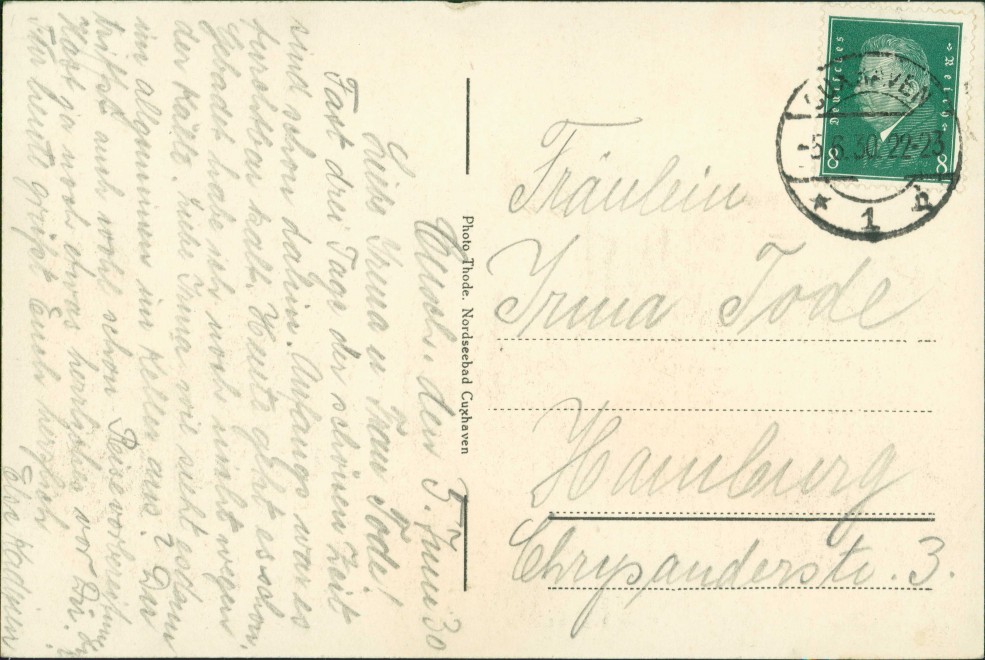 Cuxh. den 5. Juni 30
Liebe Irma u Frau Tode!
Fast drei Tage der schönen Zeit
sind schon dahin. Anfangs war es
furchtbar kalt. Heute geht es schon.
Gebadet habe ich noch nicht wegen
der Kälte. Liebe Irma wie sieht es denn
im allgemeinen im Keller aus? Du
triffst auch wohl schon Reisevorbereitung.
Hast ja noch etwas herrliches vor Dir.
Für heute grüßt Euch herzlich
Photo Thode, Nordseebad Cuxhaven
Deutsches Reich
8 8
CUXHAVEN
5.6.30 22-23
* 1 b
Fräulein
Irma Tode
Hamburg
Chrysanderstr. 3.